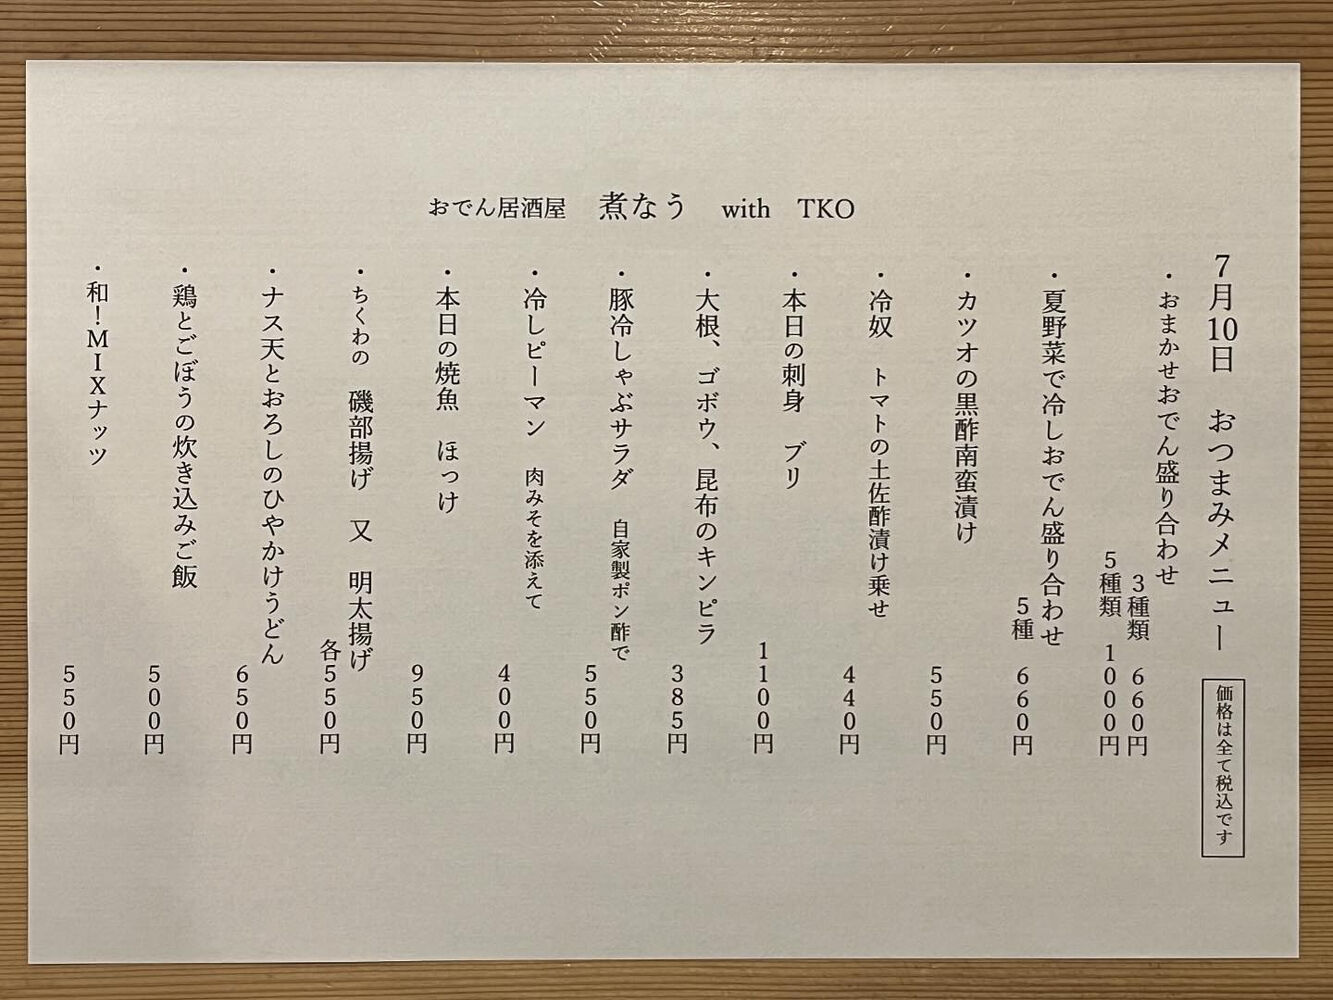 おでん居酒屋　煮なう　with　TKO
7月10日　おつまみメニュー
価格は全て税込です
・おまかせおでん盛り合わせ
3種類　660円
5種類　1000円
・夏野菜で冷しおでん盛り合わせ
5種　660円
・カツオの黒酢南蛮漬け
550円
・冷奴　トマトの土佐酢漬け乗せ
440円
・本日の刺身　ブリ
1100円
・大根、ゴボウ、昆布のキンピラ
385円
・豚冷しゃぶサラダ　自家製ポン酢で
550円
・冷しピーマン　肉みそを添えて
400円
・本日の焼魚　ほっけ
950円
・ちくわの　磯部揚げ　又　明太揚げ
各550円
・ナス天とおろしのひやかけうどん
650円
・鶏とごぼうの炊き込みご飯
500円
・和！MIXナッツ
550円